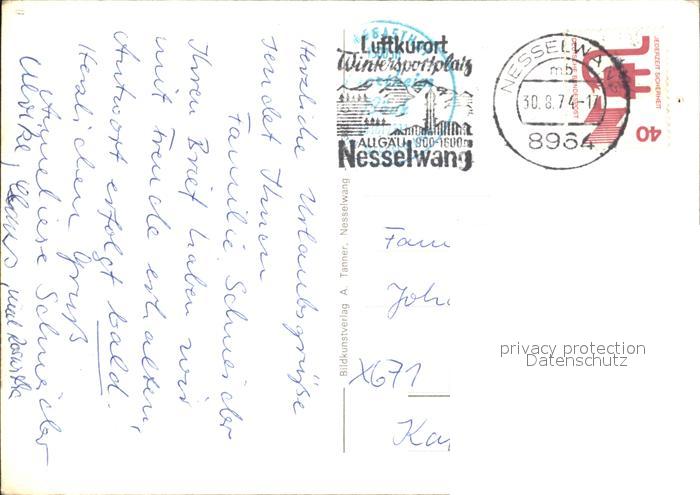 Herzliche Urlaubsgrüße
sendet Ihnen
Familie Schneider
Ihren Brief haben wir
mit Freude erhalten,
Antwort erfolgt bald.
Herzlichen Gruß
Anneliese Schneider
Ulrike, Claus, und
Luftkurort
Wintersportplatz
ALLGÄU 900-1600m
Nesselwang
NESSELWA
mb
30.8.74-17
8964
JEDERZEIT SICHERHEIT
DEUTSCHE BUNDESPOST
40
Bildkunstverlag A. Tanner, Nesselwang
Fam
Joh
X671
Ka
privacy protection
Datenschutz